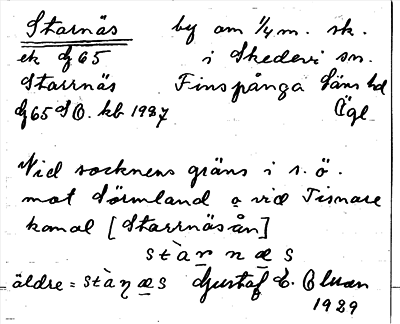 Starnäs by om 1/4 m. sk.
ek dg 65 i Skedevi sn.
Starrnäs Finspånga läns hd
dg 65 SO. kb 1927 Ögl.
Vid socknens gräns i s. ö.
mot Sörmland o vid Tisnare
kanal [Starrnäsån]
stàr næs
äldre = stàηæs Gustaf E.
1929